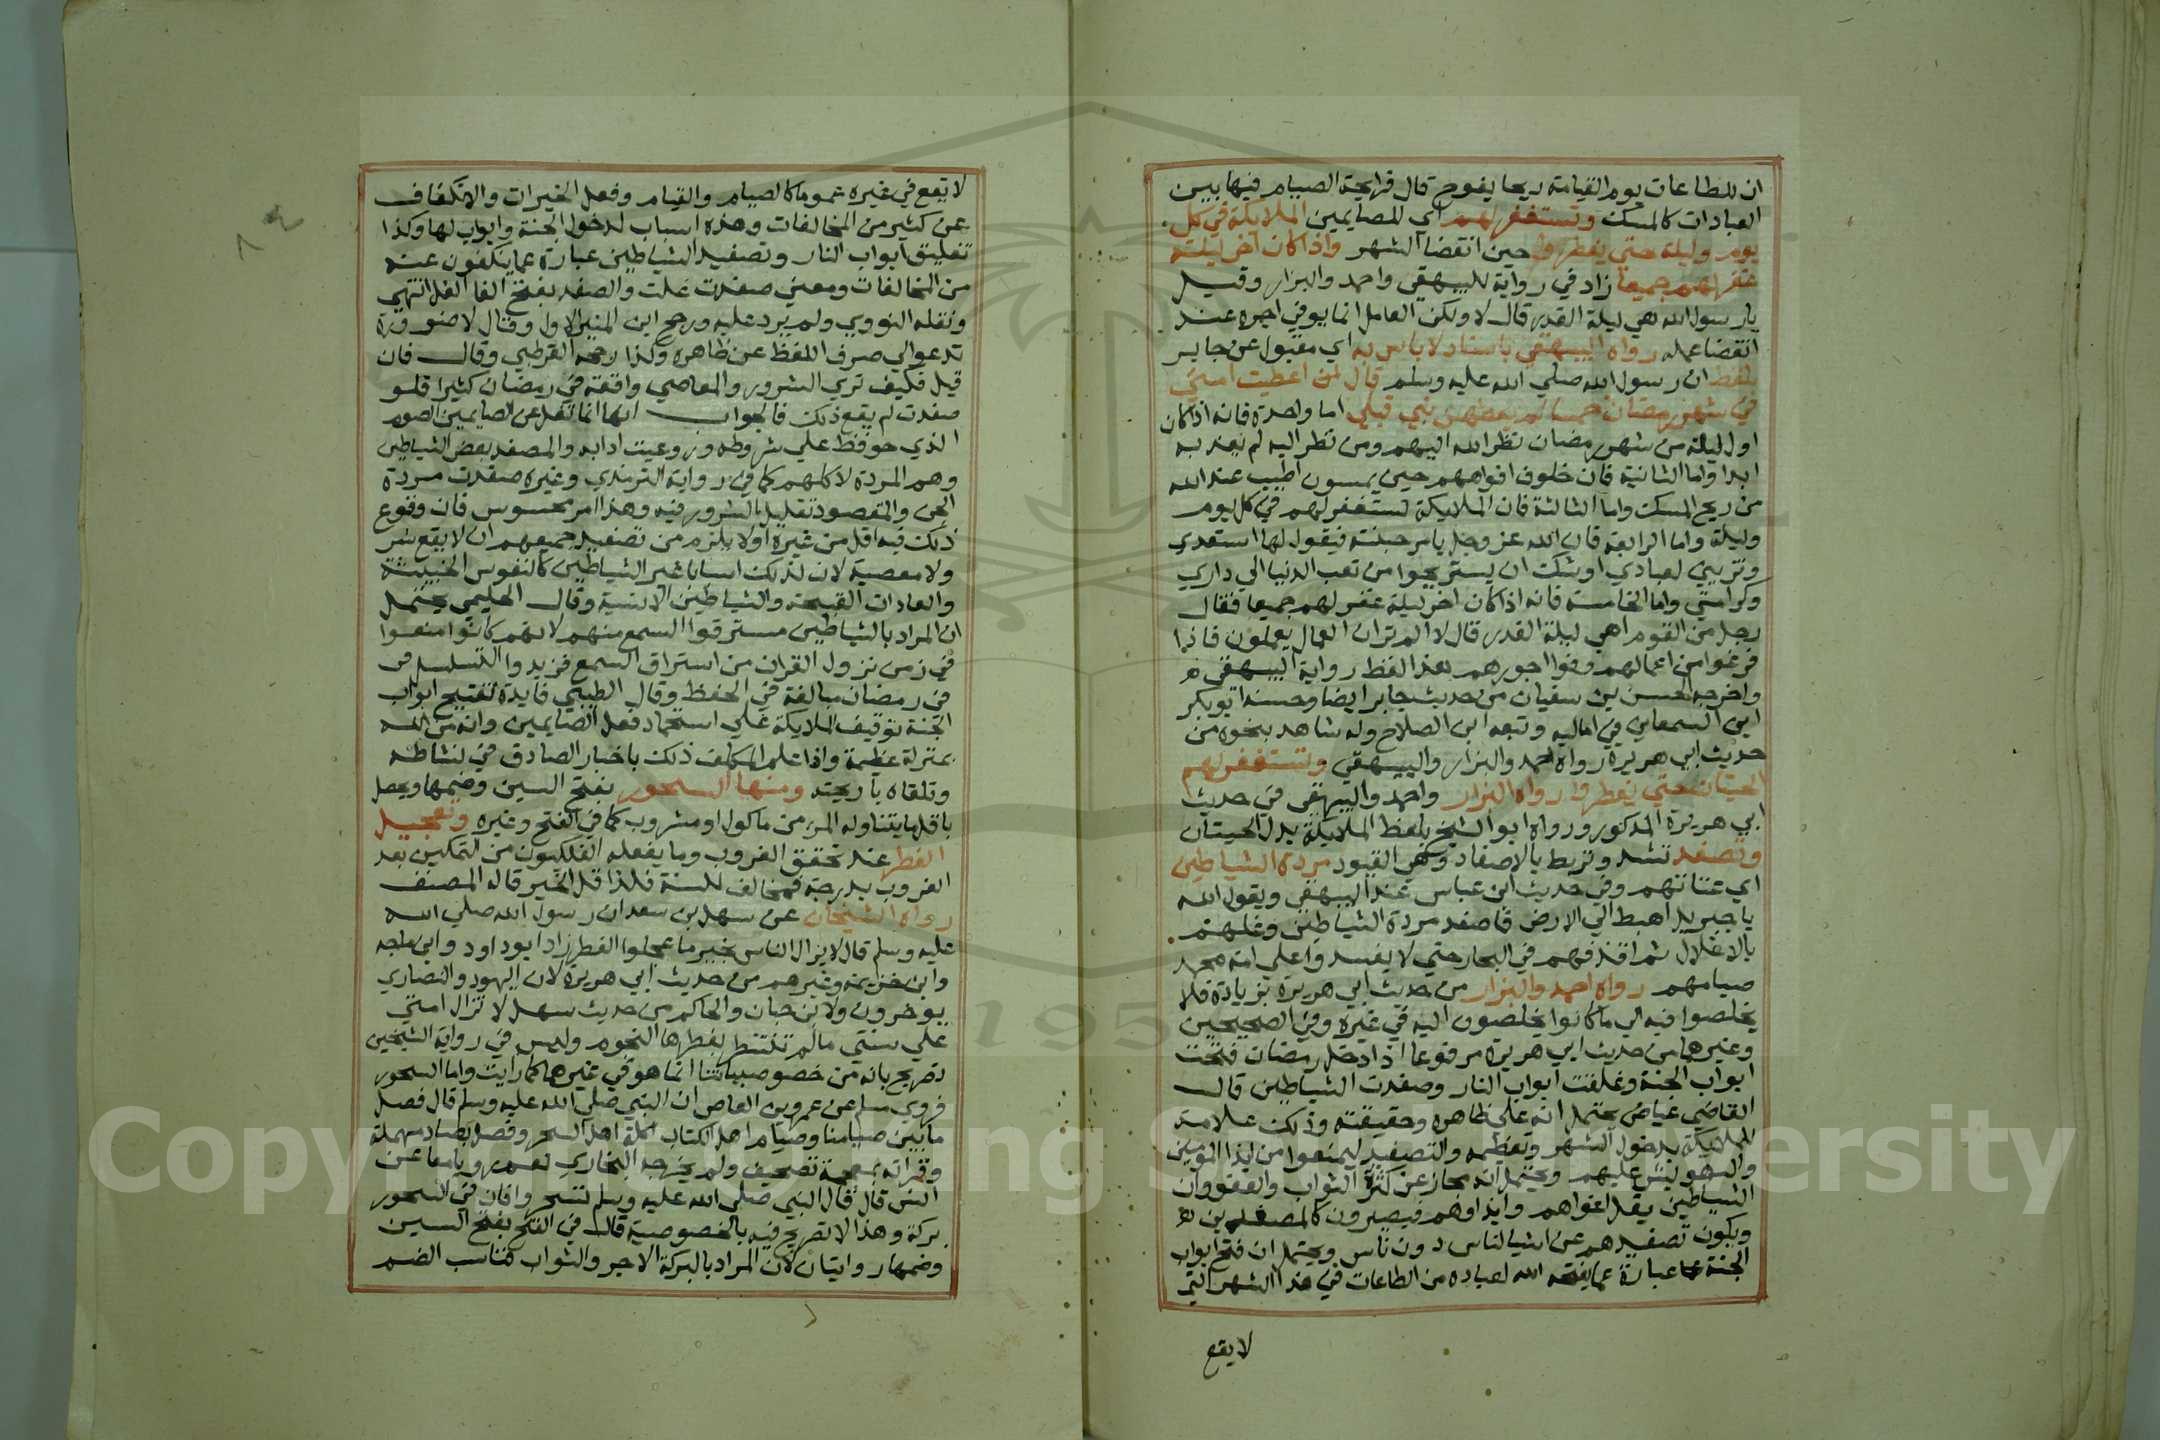 ان للطاعات يوم القيامة ريحا يفوح قال فرايحة الصيام فيها بين
العبادات كالمسك وتستغفر لهم اي للصايمين الملايكة في كل
يوم وليلة حتى يفطروا حين انقضا الشهر واذا كان آخر ليلة
غفر لهم جميعا زاد في رواية للبيهقي واحمد والبزار وقيل
يا رسول الله هي ليلة القدر قال لا ولكن العامل انما يوفي اجره عند
انقضا عمله رواه البيهقي باسناد لا باس به اي مقبول عن جابر
بلفظ ان رسول الله صلي الله عليه وسلم قال اعطيت امتي
في شهر رمضان خمسا لم يعطهن نبي قبلي اما واحدة فانه اذا كان
اول ليلة من شهر رمضان نظر الله اليهم ومن نظر اليه لم يعذبه
ابدا واما الثانية فان خلوف افواههم حين يمسون اطيب عند الله
من ريح المسك واما الثالثة فان الملايكة تستغفر لهم في كل يوم
وليلة واما الرابعة فان الله عز وجل يامر جنته فيقول لها استعدي
وتزيني لعبادي اوشك ان يستريحوا من تعب الدنيا الي داري
وكرامتي واما الخامسة فانه اذا كان اخر ليلة غفر لهم جميعا فقال
رجل من القوم اهي ليلة القدر قال لا الم تر ان العمال يعملون فاذا
فرغوا من اعمالهم وفوا اجورهم هذا لفظ رواية البيهقي
واخرجه الحسن بن سفيان من حديث جابر ايضا وحسنه ابو بكر
ابن السمعاني في اماليه وتبعه ابن الصلاح وله شاهد بنحوه من
حديث ابي هريرة رواه احمد والبزار والبيهقي وتستغفر لهم
الحيتان حتي يفطروا رواه البزار واحمد والبيهقي في حديث
ابي هريرة المذكور ورواه ابو الشيخ بلفظ الملايكة بدل الحيتان
وتصفد تشد وتربط بالاصفاد وهي القيود مردة الشياطين
اي عتاتهم وفي حديث ابن عباس عند البيهقي ويقول الله
يا جبريل اهبط الي الارض فاصفد مردة الشياطين وغلهم
بالاغلال ثم اقذفهم في البحار حتي لا يفسدوا علي امة محمد
صيامهم رواه احمد والبزار من حديث ابي هريرة بزيادة فلا
يخلصوا فيه الي ما كانوا يخلصون اليه في غيره وفي الصحيحين
وغيرهما من حديث ابي هريرة مرفوعا اذا دخل رمضان فتحت
ابواب الجنة وغلقت ابواب النار وصفدت الشياطين قال
القاضي عياض يحتمل انه علي ظاهره وحقيقته وذلك علامة
للملايكة بدخول الشهر وتعظيمه والتصفيد ليمنعوا من ايذا المؤمنين
والتهويش عليهم ويحتمل انه مجاز عن كثرة الثواب والعفو وان
الشياطين يقل اغواهم وايذاوهم فيصيرون كالمصفدين
ويكون تصفيدهم عن اشيا لناس دون ناس ويحتمل ان فتح ابواب
الجنة عبارة عما يفتحه الله لعباده من الطاعات في هذا الشهر التي
لا يقع
لا يقع في غيره عموما كالصيام والقيام وفعل الخيرات والانكفاف
عن كثير من المخالفات وهذه اسباب لدخول الجنة وابواب لها وكذا
تغليق ابواب النار وتصفيد الشياطين عبارة عما يكفون عنه
من المخالفات ومعني صفدت غلت والصفد بفتح الفا الغل انتهي
ونقله النووي ولم يزد عليه ورجح ابن المنير الاول وقال لا ضرورة
تدعوا الي صرف اللفظ عن ظاهره وكذا رجحه القرطبي وقال فان
قيل فكيف تري الشرور والمعاصي واقعة في رمضان كثيرا فلو
صفدت لم يقع ذلك فالجواب انها انما تغل عن الصايمين الصوم
الذي حوفظ علي شروطه وروعيت ادابه والمصفد بعض الشياطين
وهم المردة لا كلهم كما في رواية الترمذي وغيره صفدت مردة
الجن والمقصود تقليل الشرور فيه وهذا امر محسوس فان وقوع
ذلك فيه اقل من غيره اولا يلزم من تصفيد جميعهم ان لا يقع شر
ولا معصية لان لذلك اسبابا غير الشياطين كالنفوس الخبيثة
والعادات القبيحة والشياطين الانسية وقال الحليمي يحتمل
ان المراد بالشياطين مسترقوا السمع منهم لانهم كانوا منعوا
في زمن نزول القران من استراق السمع فزيدوا التسلسل
في رمضان مبالغة في الحفظ وقال الطيبي فايدة تفتيح ابواب
الجنة توقيف الملايكة علي استحماد فعل الصايمين وانه من الله
بمنزلة عظيمة واذا علم المكلف ذلك باخبار الصادق في نشاطه
وتلقاه باريحية ومنها السحور بفتح السين وضمها ويحصل
باقل ما يتناوله المرء من ماكول او مشروب كما في الفتح وغيره وتعجيل
الفطر عند تحقق الغروب وما يفعله الفلكيون من التمكين بعد
الغروب بدرجة فمخالف للسنة فلذا قل الخير قاله المصنف
رواه الشيخان عن سهل بن سعد ان رسول الله صلي الله
عليه وسلم قال لا يزال الناس بخير ما عجلوا الفطر زاد ابو داود وابن ماجه
وابن خزيمة وغيرهم من حديث ابي هريرة لان اليهود والنصاري
يوخرون ولابن حبان والحاكم من حديث سهل لا تزال امتي
علي سنتي ما لم تنتظر بفطرها النجوم وليس في رواية الشيخين
تصريح بانه من خصوصياتنا انما هو في غيرهما كما رايت واما السحور
فروي مسلم عن عمرو بن العاص ان النبي صلي الله عليه وسلم قال فصل
ما بين صيامنا وصيام اهل الكتاب اكلة السحر وفصل بصاد مهملة
وقراته بمعجمة تصحيف ولم يخرجه البخاري نعم رويا معا عن
انس قال قال النبي صلي الله عليه وسلم تسحروا فان في السحور
بركة وهذا لا تصريح فيه بالخصوصية قال في الفتح بفتح السين
وضمها روايتان لان المراد بالبركة الاجر والثواب فناسب الضم